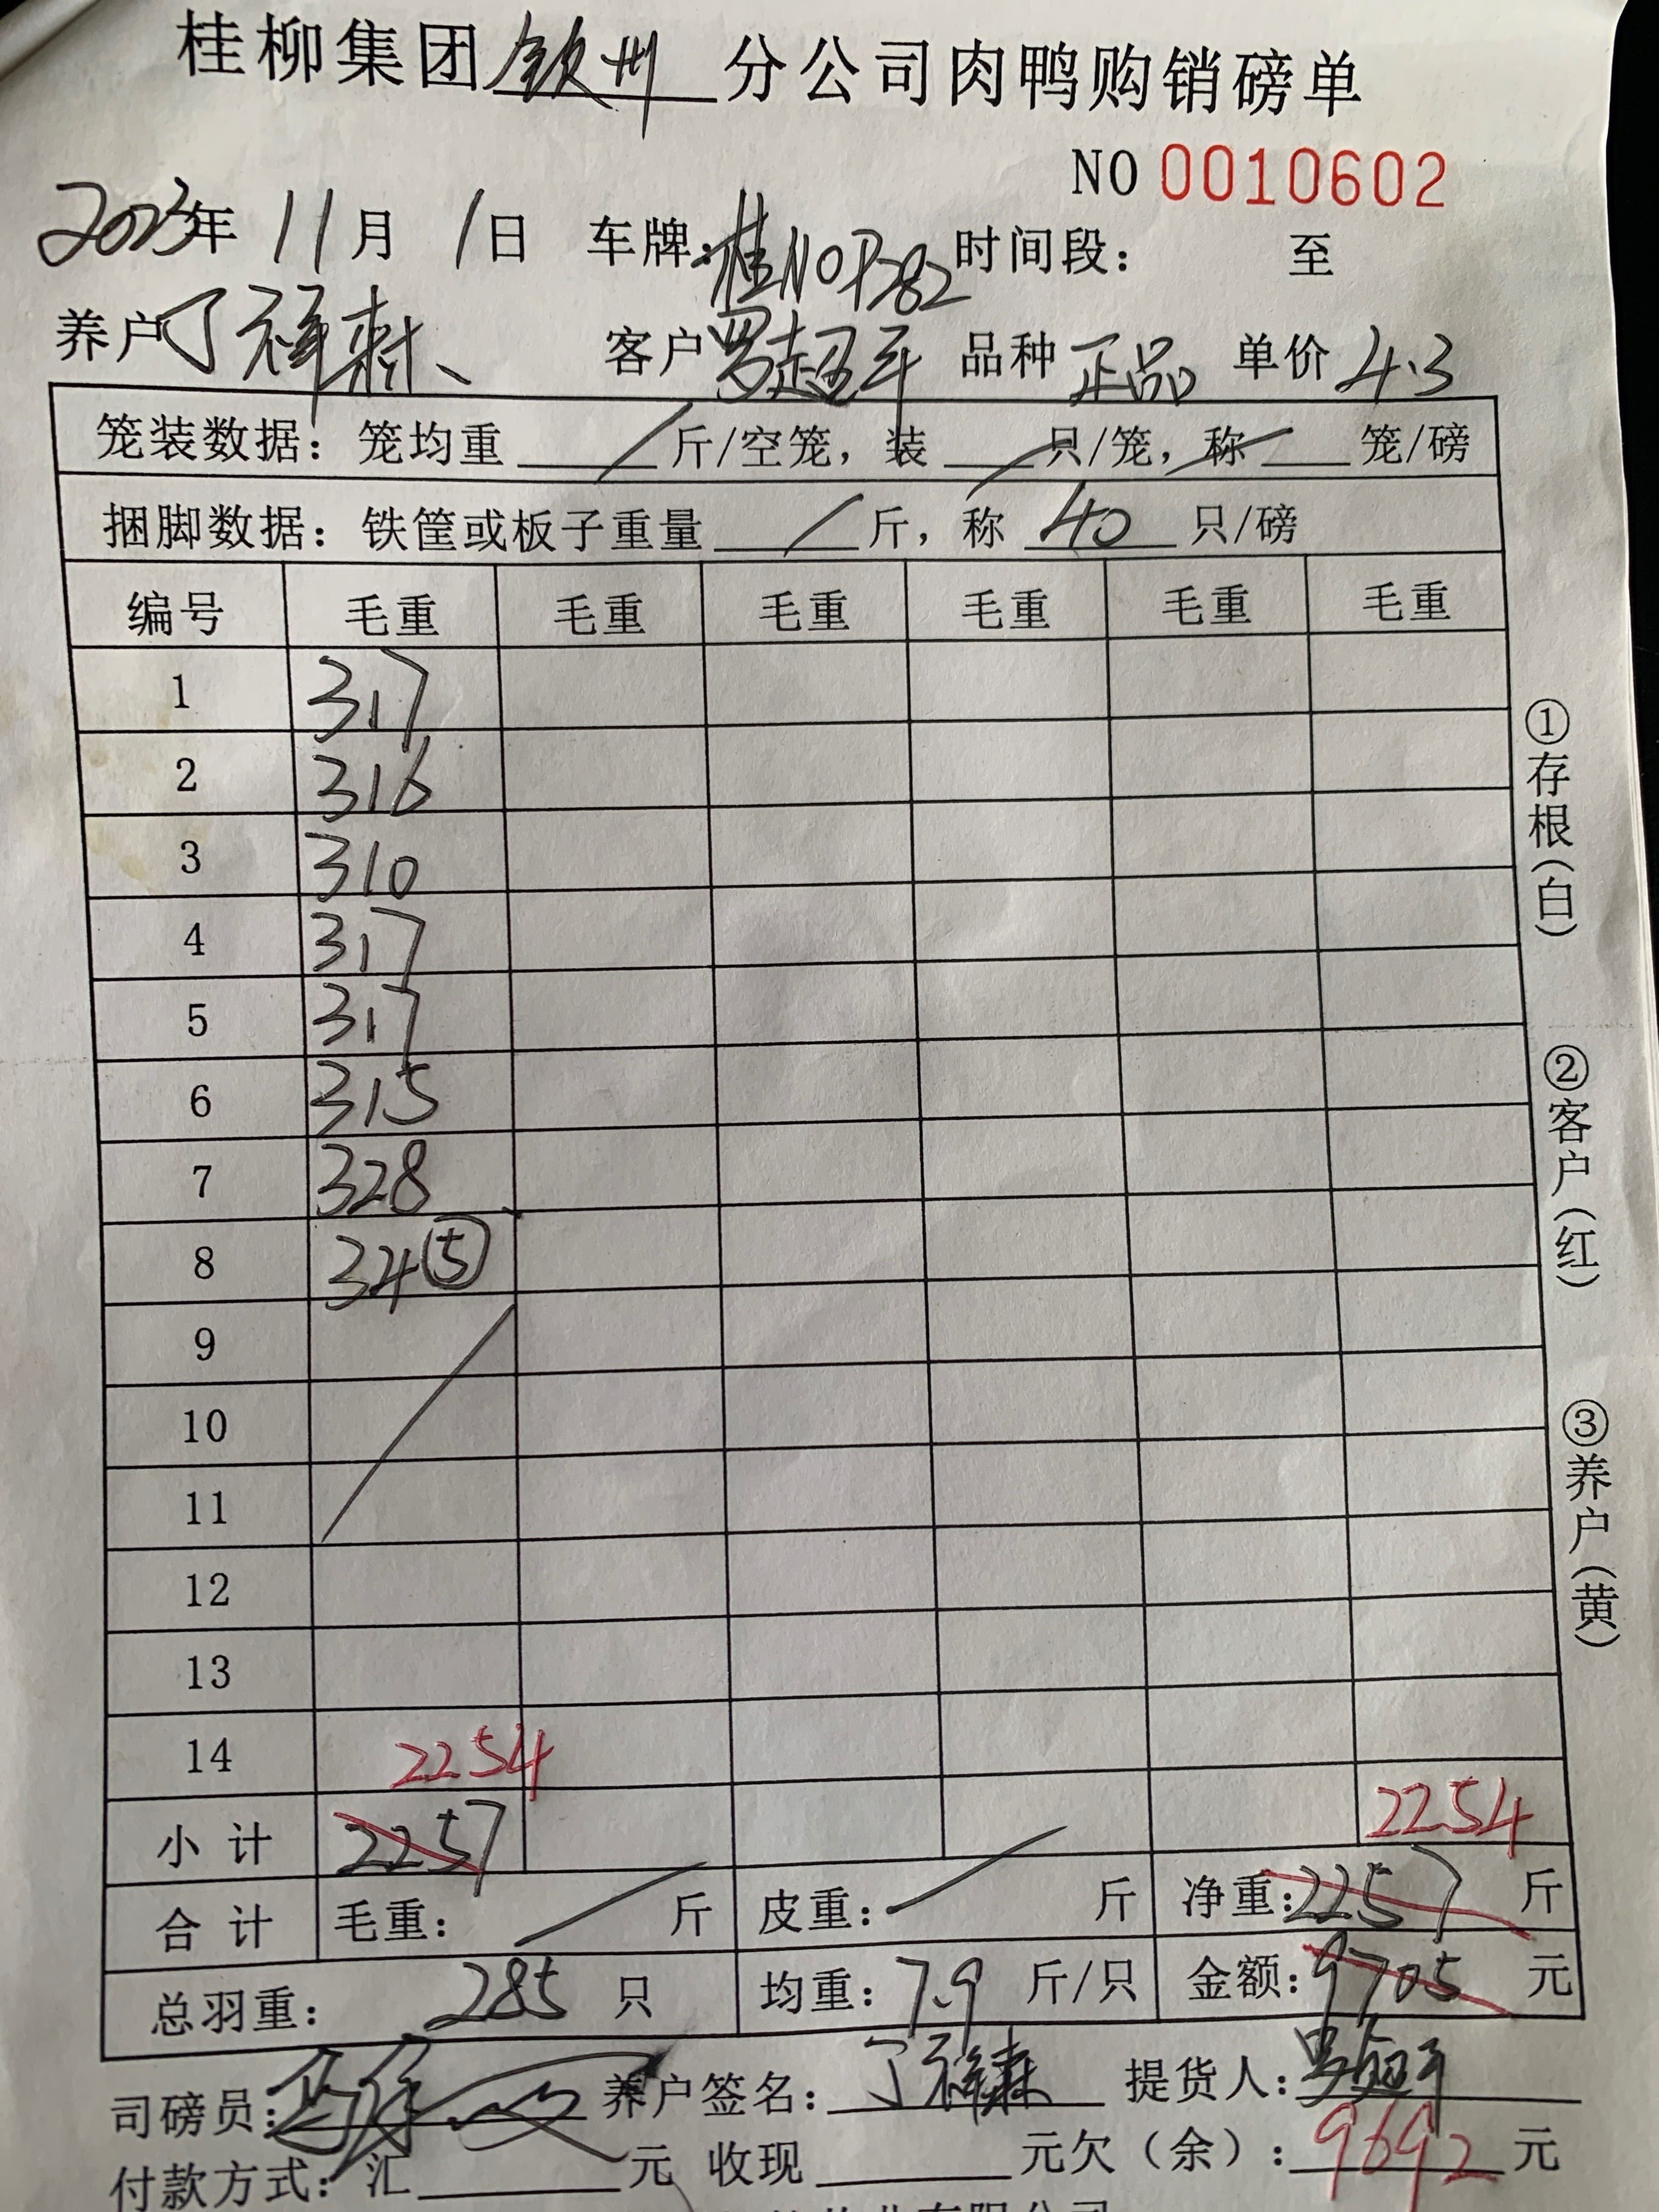 桂柳集团钦州分公司肉鸭购销磅单
NO 0010602
2023年 11月 1日 车牌:桂NOP282 时间段: 至
养户丁祥 客户罗超平 品种正品 单价4.3
笼装数据:笼均重 / 斤/空笼,装 / 只/笼,称 / 笼/磅
捆脚数据:铁筐或板子重量 / 斤,称 40 只/磅
编号 毛重 毛重 毛重 毛重 毛重 毛重
1 317
2 316
3 310
4 317
5 317
6 315
7 328
8 34⑤
9
10
11
12
13
14 2254
小计 2257 2254
合计 毛重: / 斤 皮重: / 斤 净重:2257 斤
总羽重: 285 只 均重:7.9 斤/只 金额:9705 元
司磅员: 养户签名:丁祥 提货人:罗超平
付款方式:汇 元 收现 元欠(余):9692 元
①存根(白)
②客户(红)
③养户(黄)